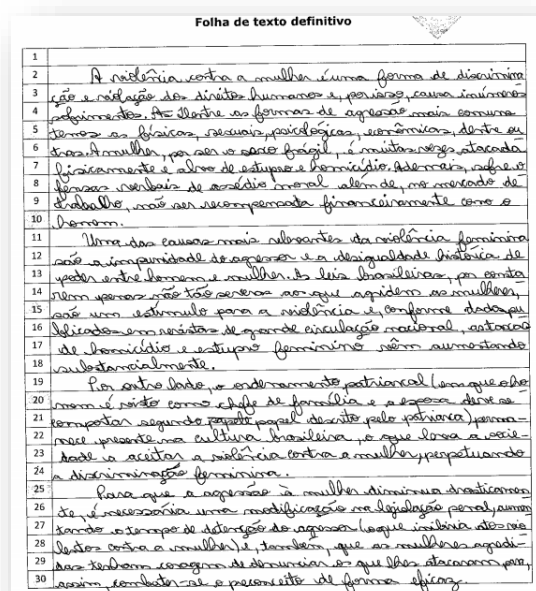 Folha de texto definitivo
1
2 A violência contra a mulher é uma forma de discrimina
3 ção e violação dos direitos humanos e, por isso, causa inúmeros
4 sofrimentos. As dentre as formas de agressão mais comuns
5 temos as físicas, sexuais, psicológicas, econômicas, dentre ou
6 tras. A mulher, por ser o sexo frágil, é muitas vezes atacada
7 fisicamente e alvo de estupro e homicídio. Ademais, sofre o
8 fensas verbais de assédio moral além de, no mercado de
9 trabalho, não ser recompensada financeiramente como o
10 homem.
11 Uma das causas mais relevantes da violência feminina
12 são a impunidade do agressor e a desigualdade histórica de
13 poder entre homem e mulher. As leis brasileiras, por consta
14 rem penas não tão severas aos que agridem as mulheres,
15 são um estímulo para a violência e, conforme dados pu
16 blicados em revistas de grande circulação nacional, as taxas
17 de homicídio e estupro feminino vêm aumentando
18 substancialmente.
19 Por outro lado, o ordenamento patriarcal (em que o ho
20 mem é visto como chefe de família e a esposa deve se
21 comportar segundo papel descrito pelo patriarca) perma
22 nece presente na cultura brasileira, o que leva a socie-
23 dade a aceitar a violência contra a mulher, perpetuando
24 a discriminação feminina.
25 Para que a agressão à mulher diminua drasticamen
26 te, é necessária uma modificação na legislação penal, aumen
27 tando o tempo de detenção do agressor (o que inibiria atos vio
28 lentos contra a mulher) e, também, que as mulheres agredi-
29 das tenham coragem de denunciar os que lhes atacaram para,
30 assim, combater-se o preconceito de forma eficaz.